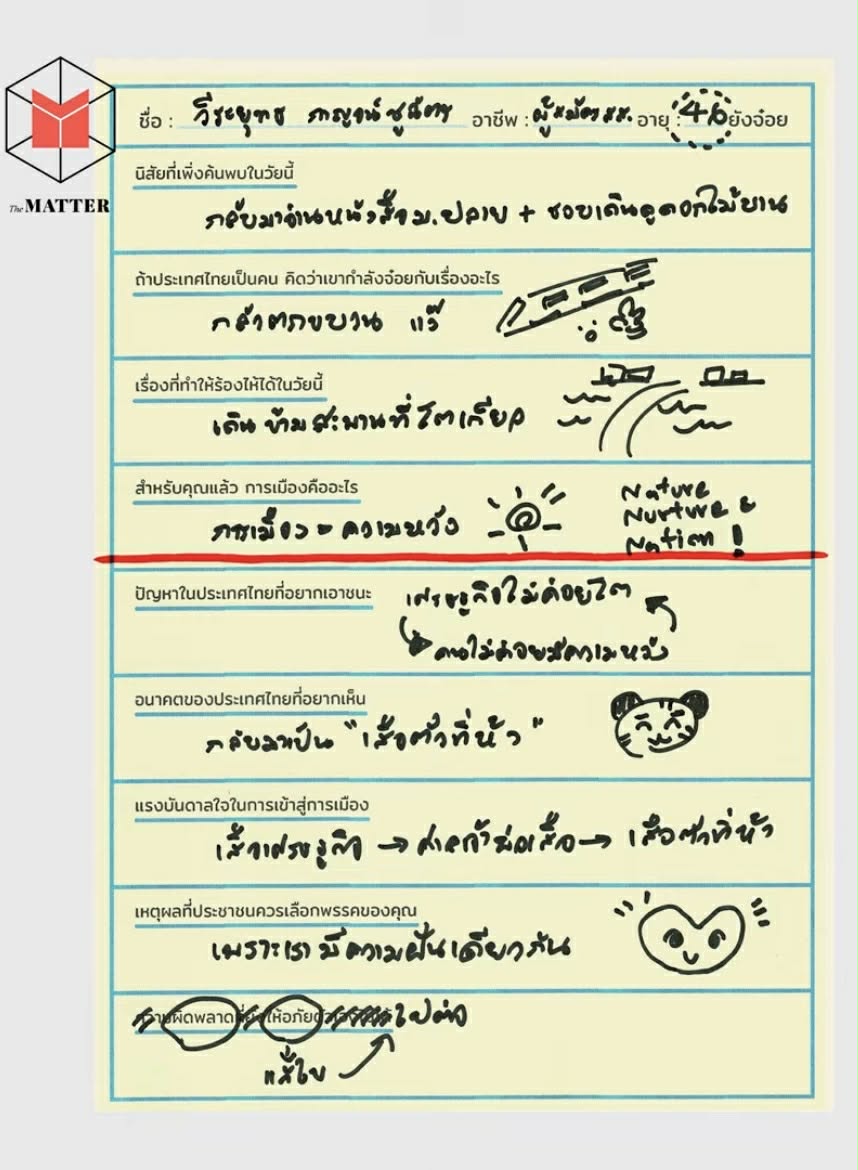 The MATTER
ชื่อ : วีระยุทธ กาญจน์ชูฉัตร อาชีพ : ผู้สมัคร สส. อายุ : 46 ยังจ๋อย
นิสัยที่เพิ่งค้นพบในวัยนี้
กลับมาอ่านหนังสือ ม.ปลาย + ชอบเดินดูดอกไม้บาน
ถ้าประเทศไทยเป็นคน คิดว่าเขากำลังจ๋อยกับเรื่องอะไร
กลัวตกขบวน แว้
เรื่องที่ทำให้ร้องไห้ได้ในวัยนี้
เดินข้ามสะพานที่โตเกียว
สำหรับคุณแล้ว การเมืองคืออะไร
การเมือง = ความหวัง
Nature
Nurture &
Nation !
ปัญหาในประเทศไทยที่อยากเอาชนะ
เศรษฐกิจไม่ค่อยโต
คนไม่ค่อยมีความหวัง
อนาคตของประเทศไทยที่อยากเห็น
กลับมาเป็น "เสือตัวที่ห้า"
แรงบันดาลใจในการเข้าสู่การเมือง
เสือเศรษฐกิจ → ศาลเจ้าพ่อเสือ → เสือตัวที่ห้า
เหตุผลที่ประชาชนควรเลือกพรรคของคุณ
เพราะเรามีความฝันเดียวกัน
ความผิดพลาดที่ยังให้อภัยตัวเองไม่ได้ ไปต่อ
แก้ไข